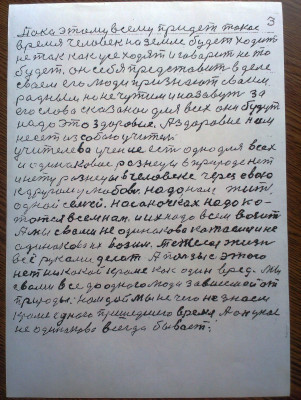 3
Пока этому всему придет такое
время человек на земле будет ходить
не так как все ходят и говорит не то
будет, он себя представить в деле
своем его люди признают своим
родным не чужим и назовут за
его слова сказаны для всех они будут
надо это здоровие, А здоровие нам
несет из собою учитель
учителева учение есть одно для всех
и одинаковое разницы в природе нет
и нету разницы в человеке через свою
к другому любовь надо нам жить
одной семей, на саночках надо ко-
тотся всем нам и их надо всем возит
А мы своими не одинаково катаемся не
одинаково их возим. Тяжелая жизнь
всё руками делат А пользы с этого
нет никакой кроме как один вред. Мы
своми все до одного люди зависимой от
природы. Когда бы мы не чего не знаем
кроме одного пришедшего время А он у нас
не одинаково всегда бывает.